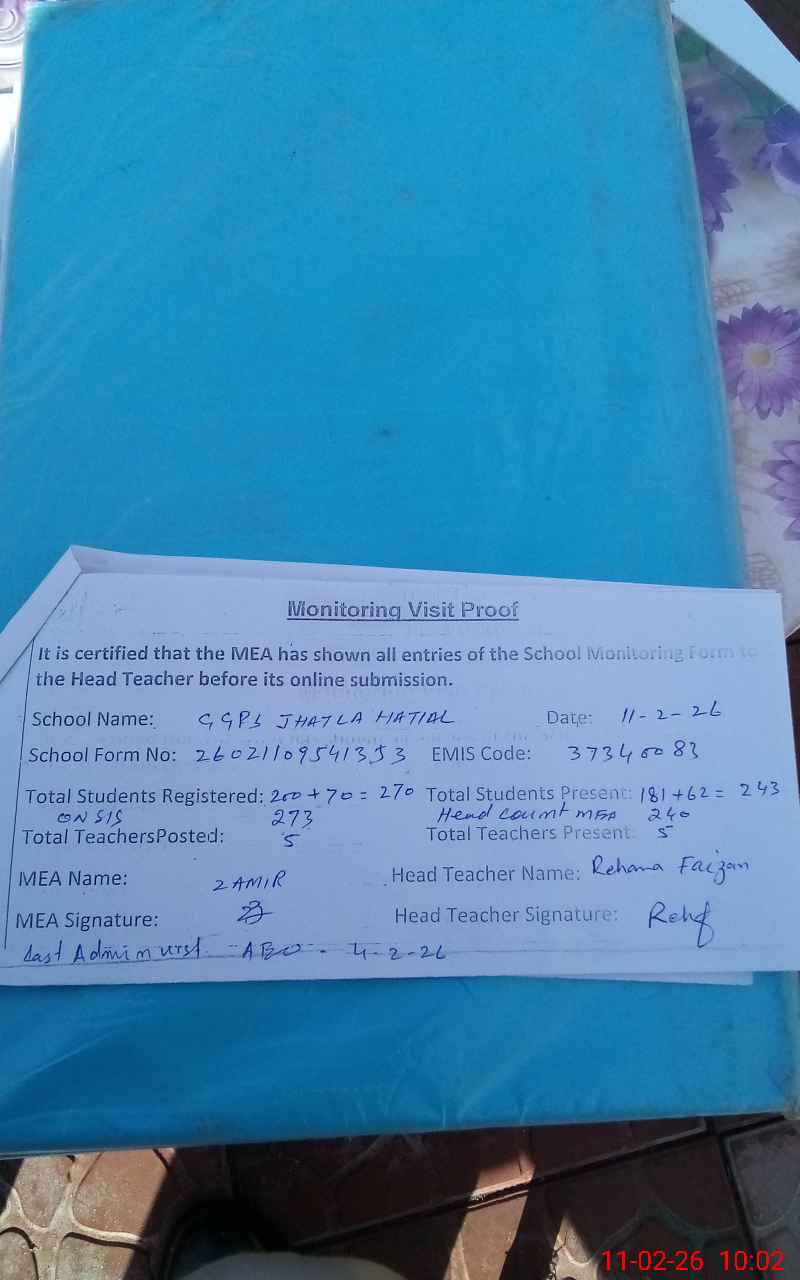 Monitoring Visit Proof
It is certified that the MEA has shown all entries of the School Monitoring Form to
the Head Teacher before its online submission.
School Name: GGPS JHATLA HATIAL Date: 11-2-26
School Form No: 26021109541353 EMIS Code: 37340083
Total Students Registered: 200+70=270 Total Students Present: 181+62= 243
ON SIS 273 Head count MEA 240
Total TeachersPosted: 5 Total Teachers Present: 5
MEA Name: ZAMIR Head Teacher Name: Rehana Faizan
MEA Signature: Head Teacher Signature:
Last Admin AEO - 4-2-26
11-02-26 10:02